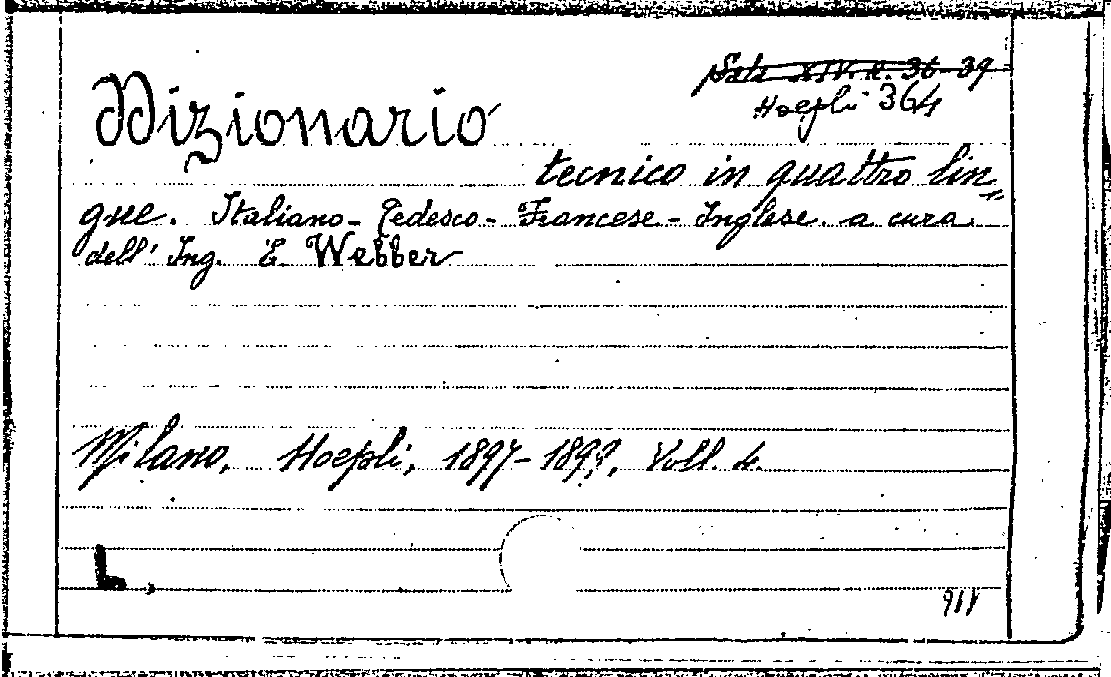 Sala XIV. R. 36-39
Hoepli 364
Dizionario
tecnico in quattro lin=
gue. Italiano-Tedesco-Francese-Inglese. a cura
dell' Ing. E. Webber
Milano, Hoepli, 1897-1899, Voll. 4.